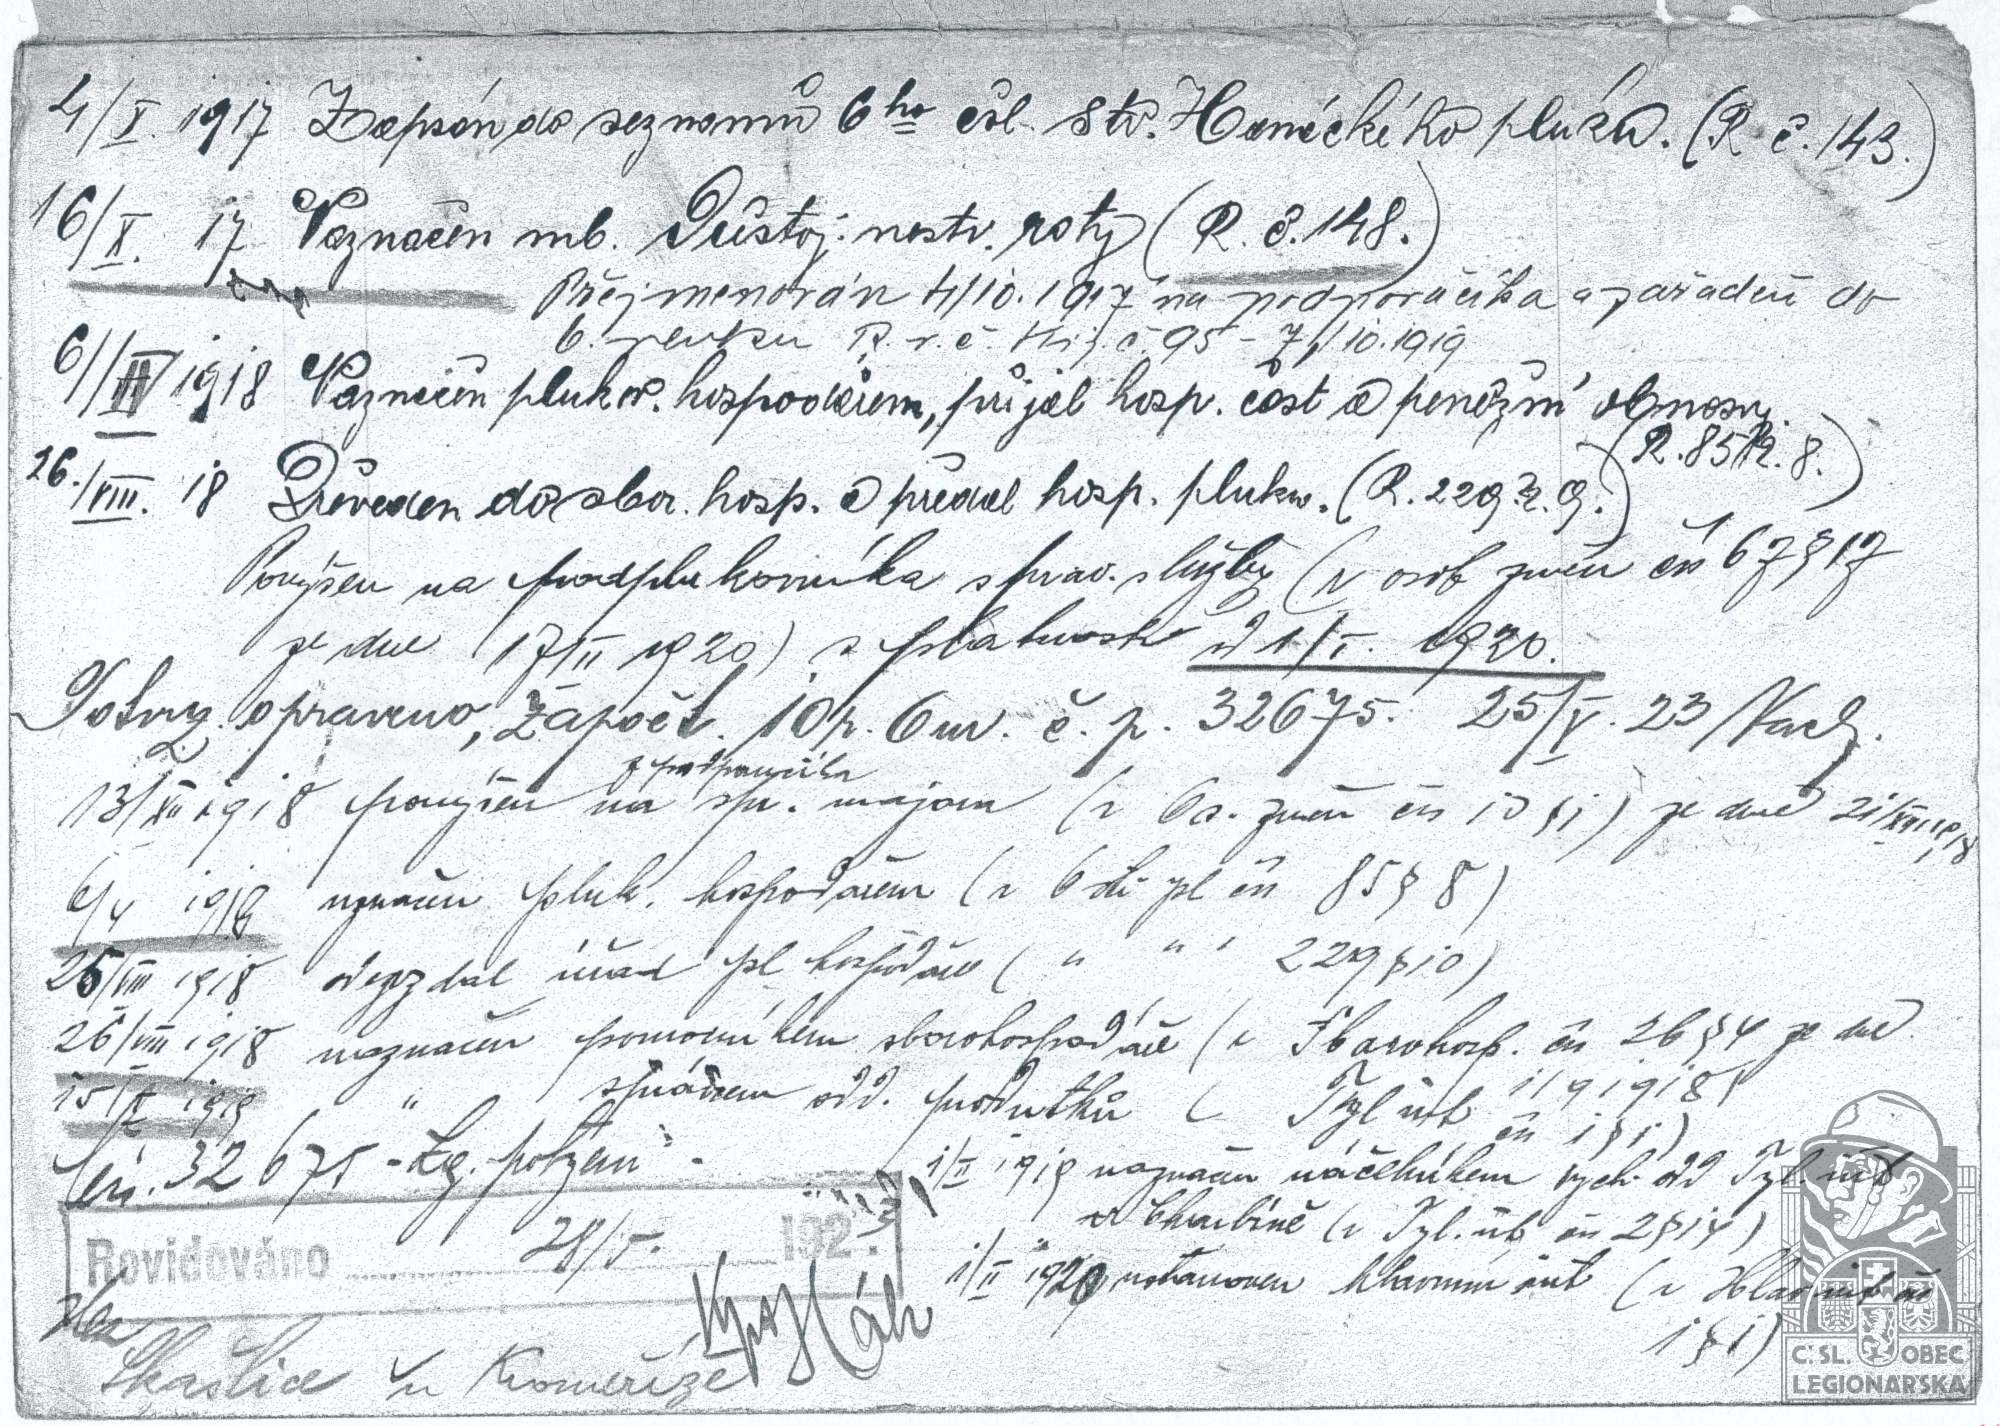 4/X. 1917 Zapsán do seznamů 6ho čsl. stř. Hanáckého pluku. (R. č. 143.)
16/X. 17 Vaznačen ml. Důstoj. nestr. roty (R. č. 148.)
Přejmenován 4/10. 1917 na podporučíka a zařaděn do
6. pluku R. r. č. č. 95 - 7/10. 1919
6/IV 1918 Vaznačen plukov. hospodářem, přijal hosp. část a peněžní obnosy.
(R. 85 §. 8.)
26./VIII. 18 Převeden do sbor. hosp. a předal hosp. plukov. (R. 229. §. 9.)
Povýšen na podplukovníka správ. služby (r osob změn čís 67 § 17
ze dne 17/II 1920) s platností od 1/I. 1920.
opraveno, započt. 10 p. 6 m. č. p. 32675. 25/V. 23
z podporučíka
13/XII 1918 povýšen na spr. majora (r Os. změn čís 10 § 1) ze dne 21/XII. 1918
6/4 1918 uznačen pluk. hospodářem (r 6 stř pl čís 85 § 8)
25/VIII 1918 odevzdal úřad pl hospodáře ( " " " 229 § 10)
26/VIII 1918 naznačen pomocníkem sborohospodáře (r Sborohosp. čís 26 § 4 ze dne
1/9 1918)
15/II 1919 " správcem odd. produktů ( Týl úřb čís 1 § 1)
čís. 32675 -
1/II 1919 naznačen náčelníkem vých. odd Týl. úřb
v Charbině (r Týl. úřb čís 2 § 14)
1/II 1920 ustanoven hlavním int (r Hlav int čís
1 § 1)
Rovidováno 28/5. 192 .
Skaštice u Kroměříže
Č: SL. OBEC
LEGIONÁŘSKÁ